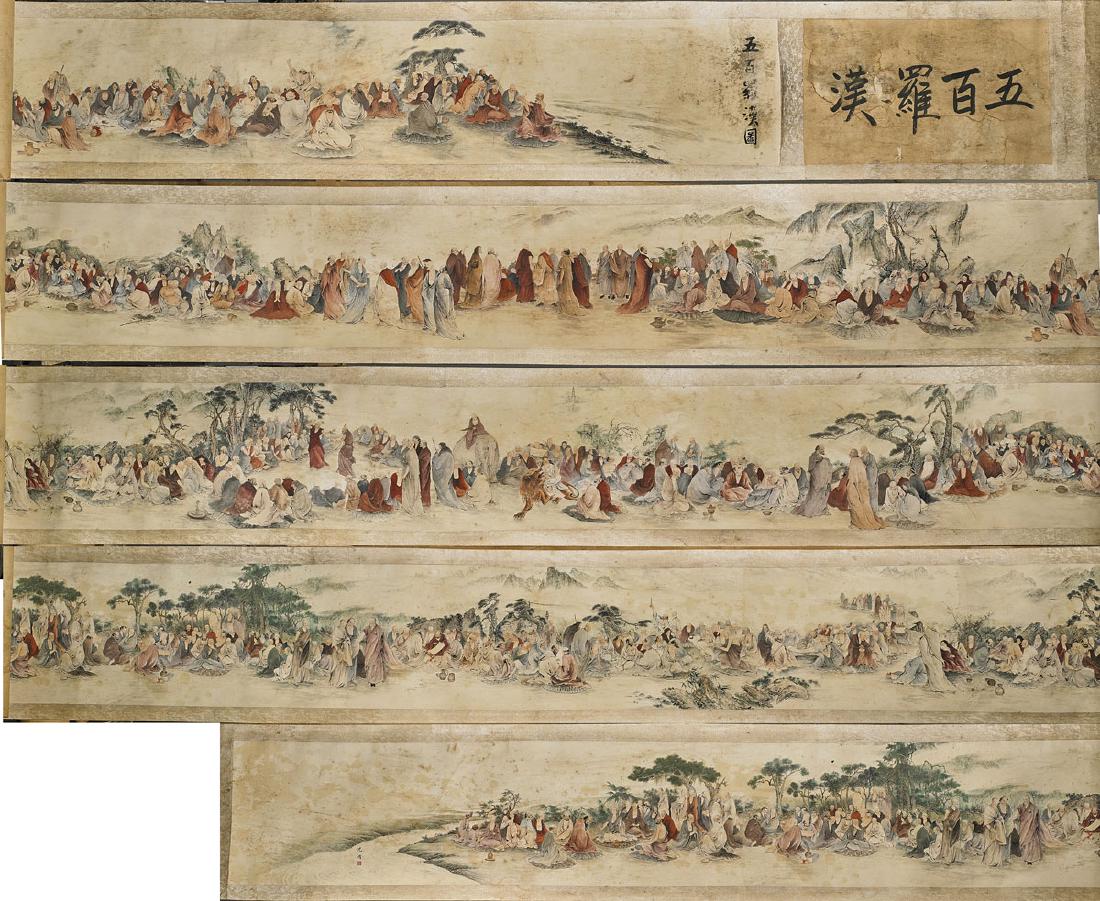 五百羅漢
五百羅漢圖